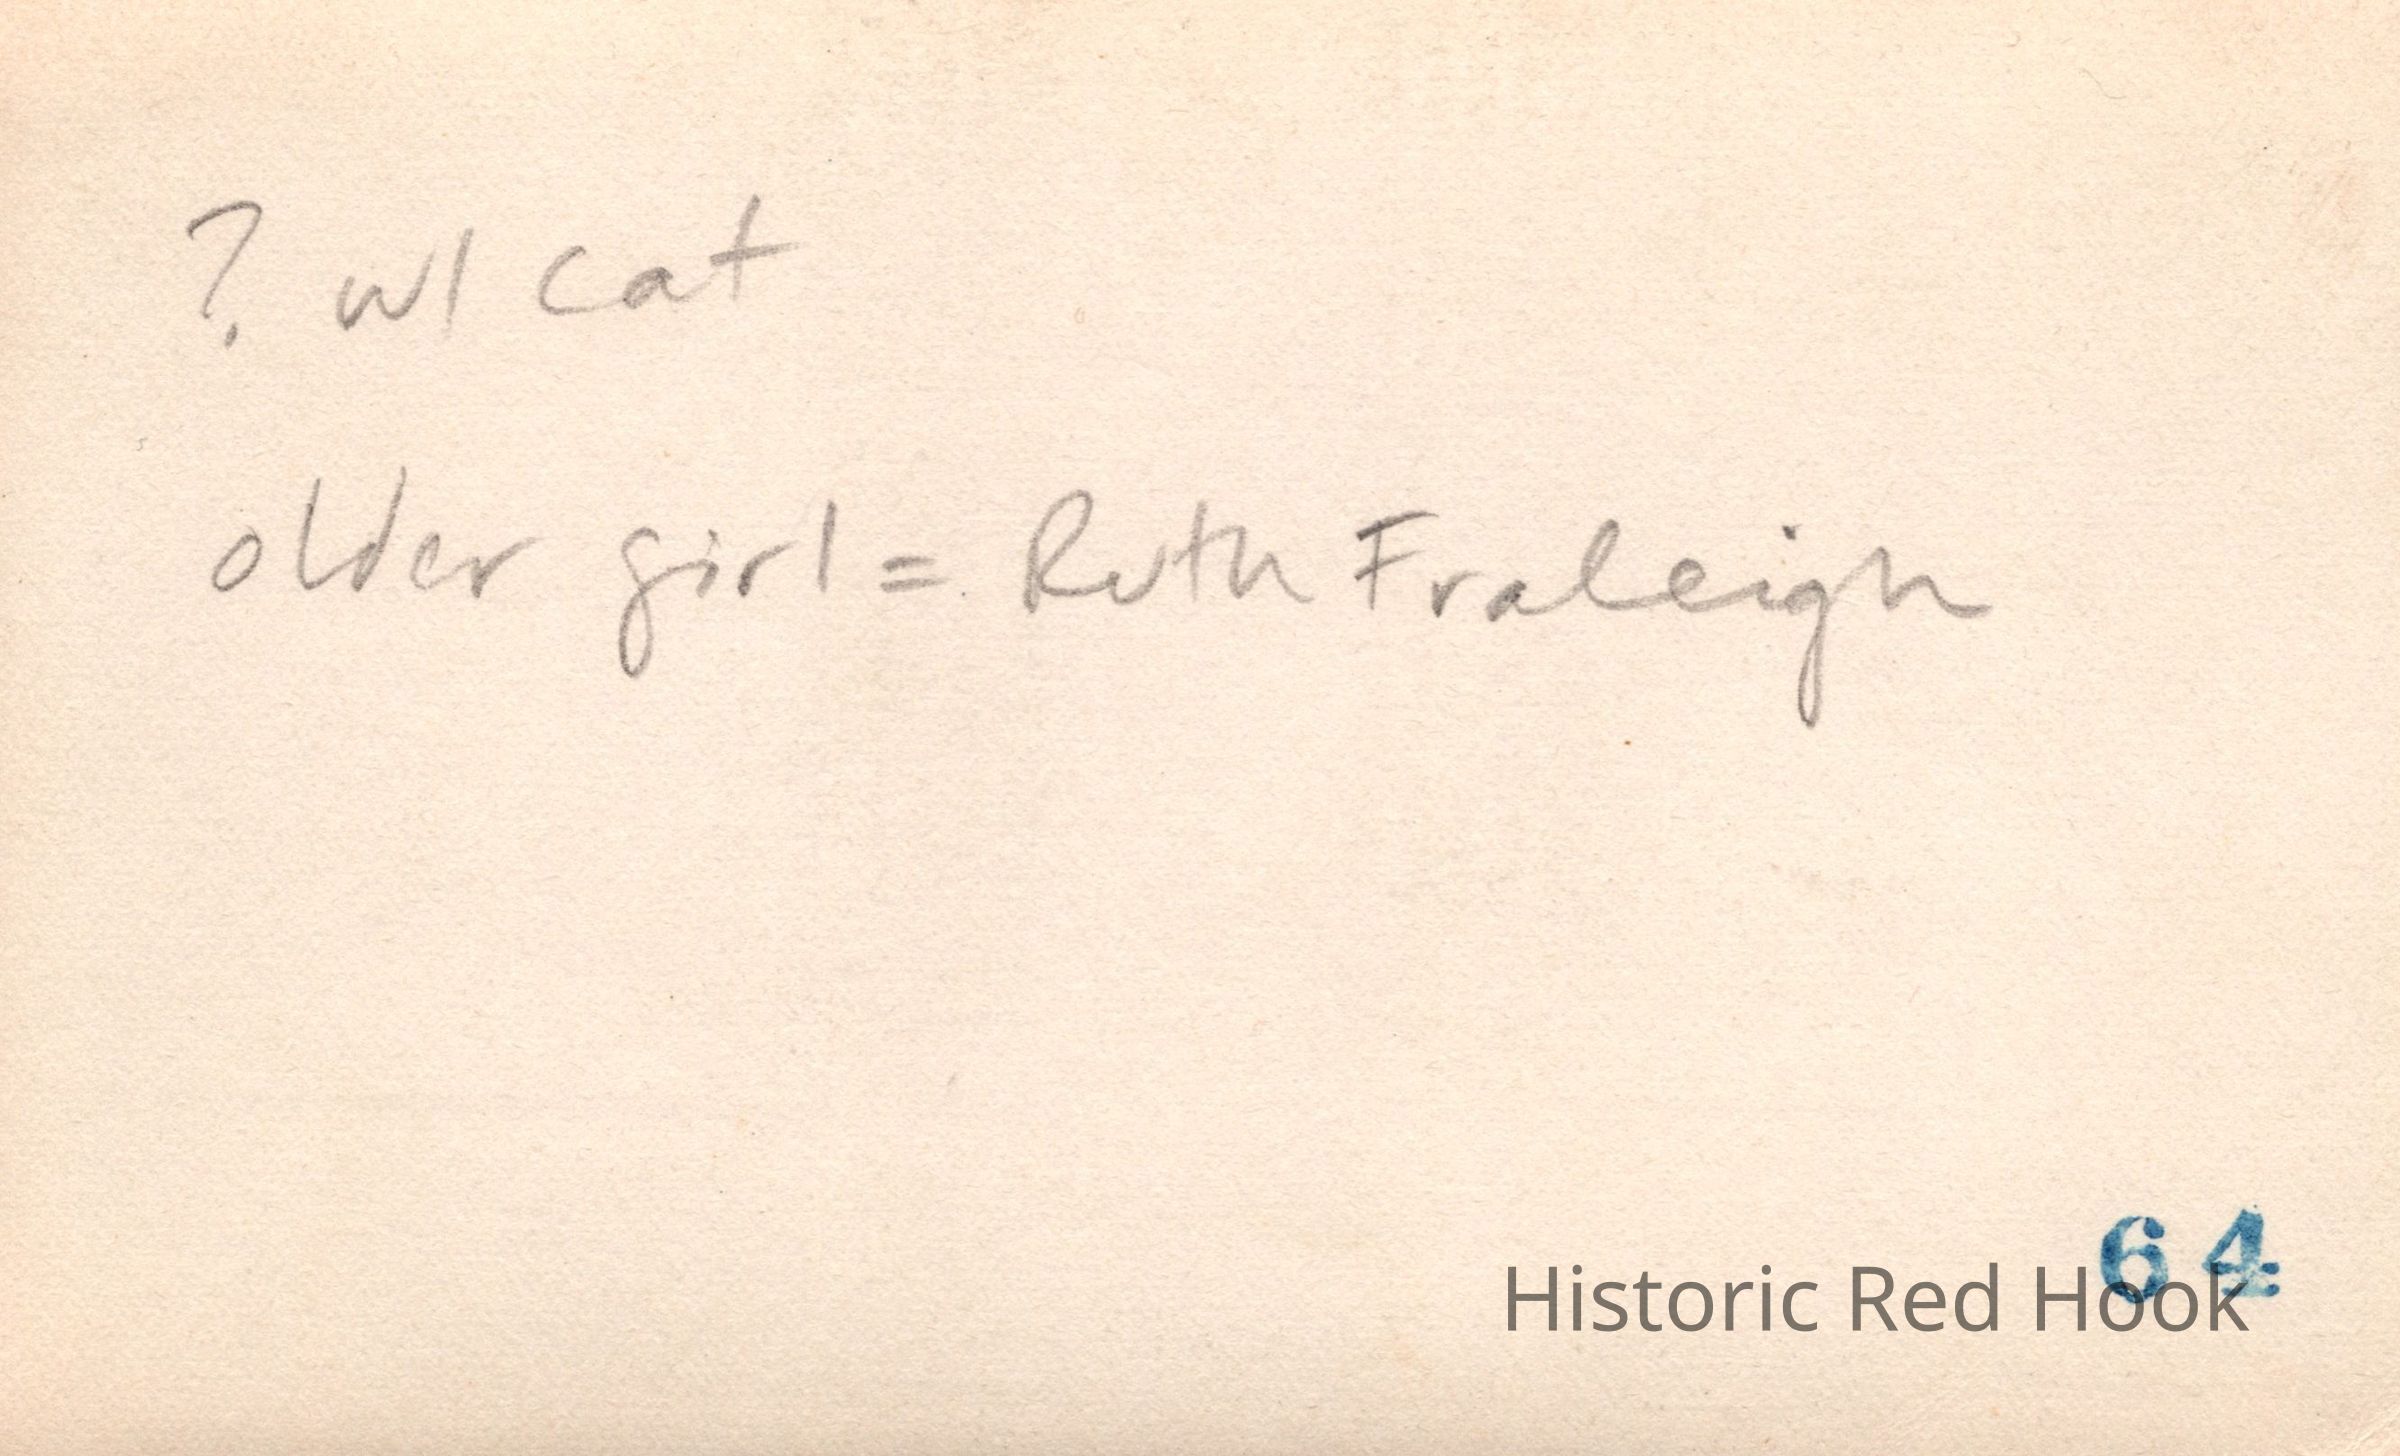 ? w/ cat
older girl = Ruth Fraleigh
64
Historic Red Hook